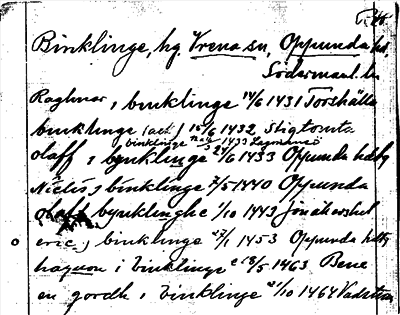 Binklinge, hg. Vrena sn, Oppunda hd,
Södermanl. l.
Raghnar i binklinge 14/6 1431 Torshälla
binklinge (act) 16/6 1432 Stigtomta
binklinge 1433
olaff i bynklinge 24/6 1433 Oppunda hdtg
Niclis i binklinge 2/5 1440 Oppunda
olaff bynklinghe 1/10 1443 Jönåkershd
eric i binklinge 27/1 1453 Oppunda hdtg
haquon i binklinge 18/5 1463 Bene
en gordh i binklinge 21/10 1464 Vadstena